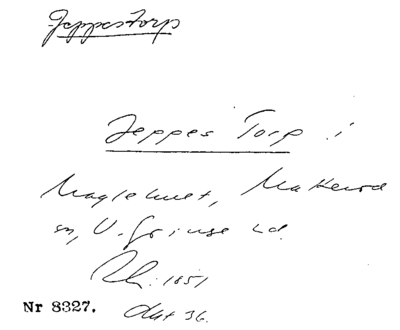 Jeppestorp
Jeppes Torp i
Maglehult, Matteröd
sn, V. Göinge hd.
Rh: 1851
Nr 8327. dat 36.